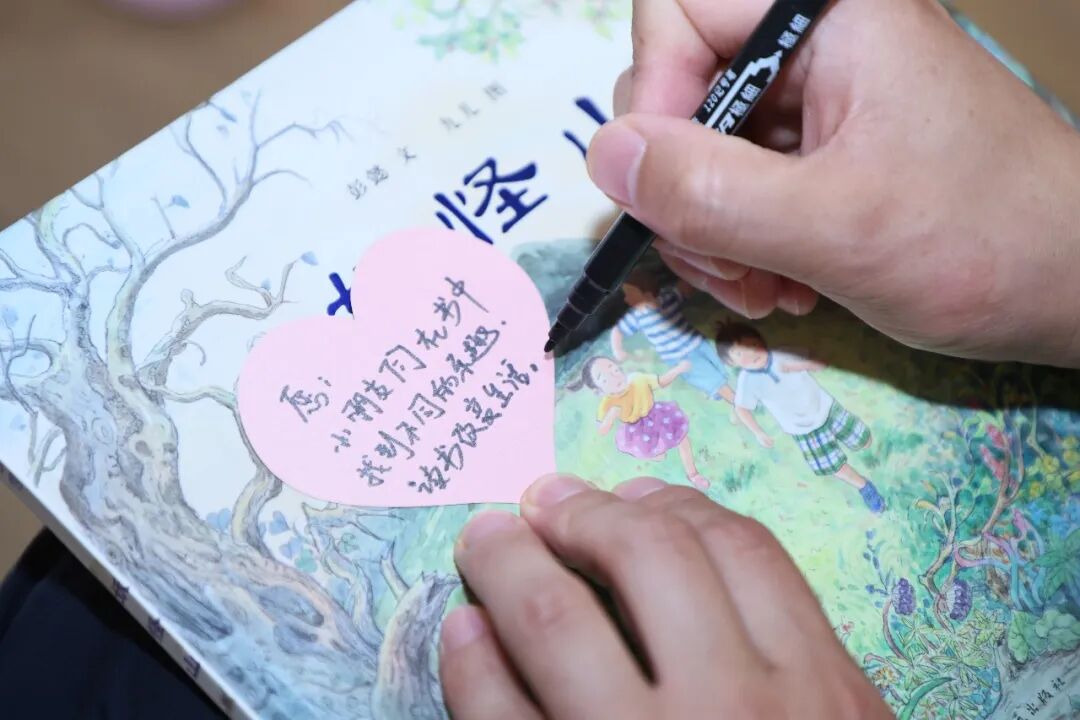 九儿 图
彭懿 文
怪
愿:
小朋友们在书中
找到不同的乐趣.
读书改变生活。
極細
極細
出版社